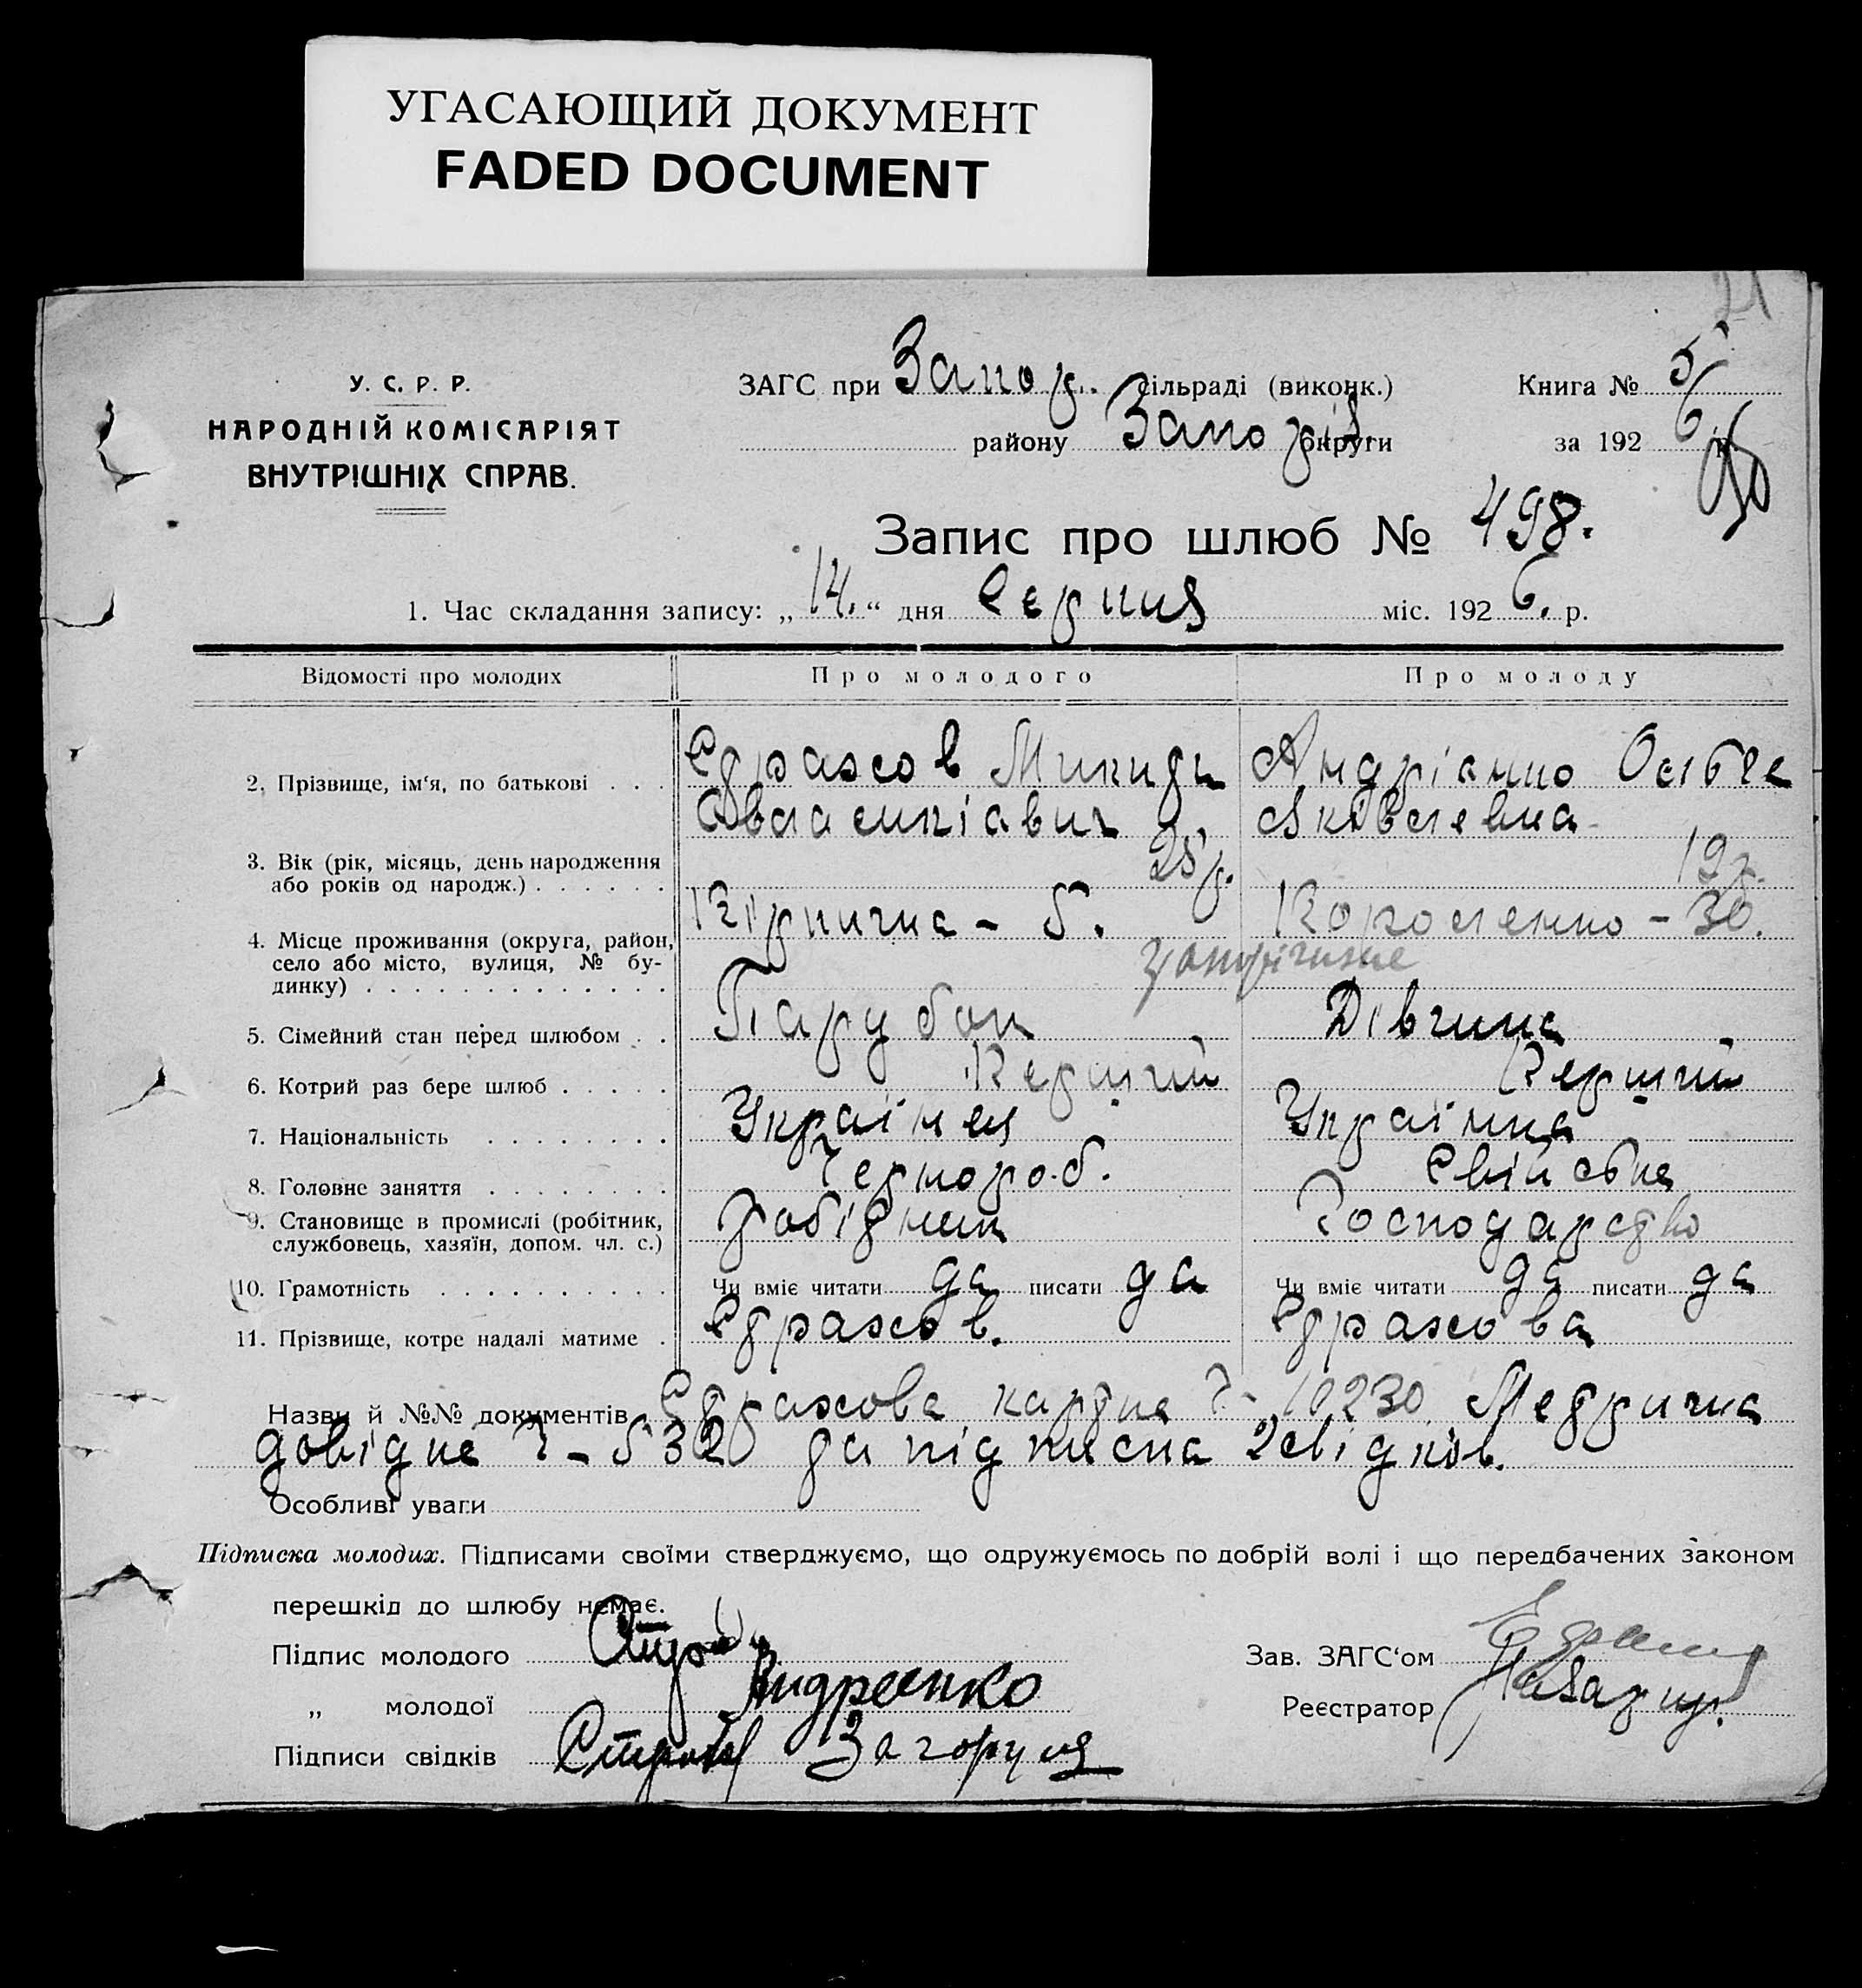 УГАСАЮЩИЙ ДОКУМЕНТ
FADED DOCUMENT
21
У. С. Р. Р.
НАРОДНІЙ КОМІСАРІЯТ
ВНУТРІШНІХ СПРАВ.
ЗАГС при Запор. сільраді (виконк.)
району Запоріз. округи
Книга № 5
за 1926 р.
Запис про шлюб № 498.
1. Час складання запису: „14.“ дня Серпня міс. 1926. р.
Відомості про молодих
Про молодого
Про молоду
2. Прізвище, ім‘я, по батькові . . .
Страхов Микита
Андріенко
Яківлевна
3. Вік (рік, місяць, день народження
або років од народж.) . . . . . .
25 р.
19 р.
4. Місце проживання (округа, район,
село або місто, вулиця, № бу-
динку) . . . . . . . . . . . . .
Кірпична - 5.
Короленко - 30.
5. Сімейний стан перед шлюбом . .
Парубок
Дівчина
6. Котрий раз бере шлюб . . . . .
Перший
Перший
7. Національність . . . . . . . .
Українец
Українка
8. Головне заняття . . . . . . . .
Чернороб.
Свійстке
9. Становище в промислі (робітник,
службовець, хазяїн, допом. чл. с.)
робітник
Господарство
10. Грамотність . . . . . . . . . .
Чи вміє читати да писати да
Чи вміє читати да писати да
11. Прізвище, котре надалі матиме .
Страхов.
Страхова
Назви й №№ документів Страхова картка Ч- 10230. Метрична
довідка Ч - 5320 та підписка 2 свідків.
Особливі уваги
Підписка молодих. Підписами своїми стверджуємо, що одружуємось по добрій волі і що передбачених законом
перешкід до шлюбу немає.
Підпис молодого
„ молодої Андреенко
Підписи свідків Загоруля
Зав. ЗАГС‘ом
Реєстратор